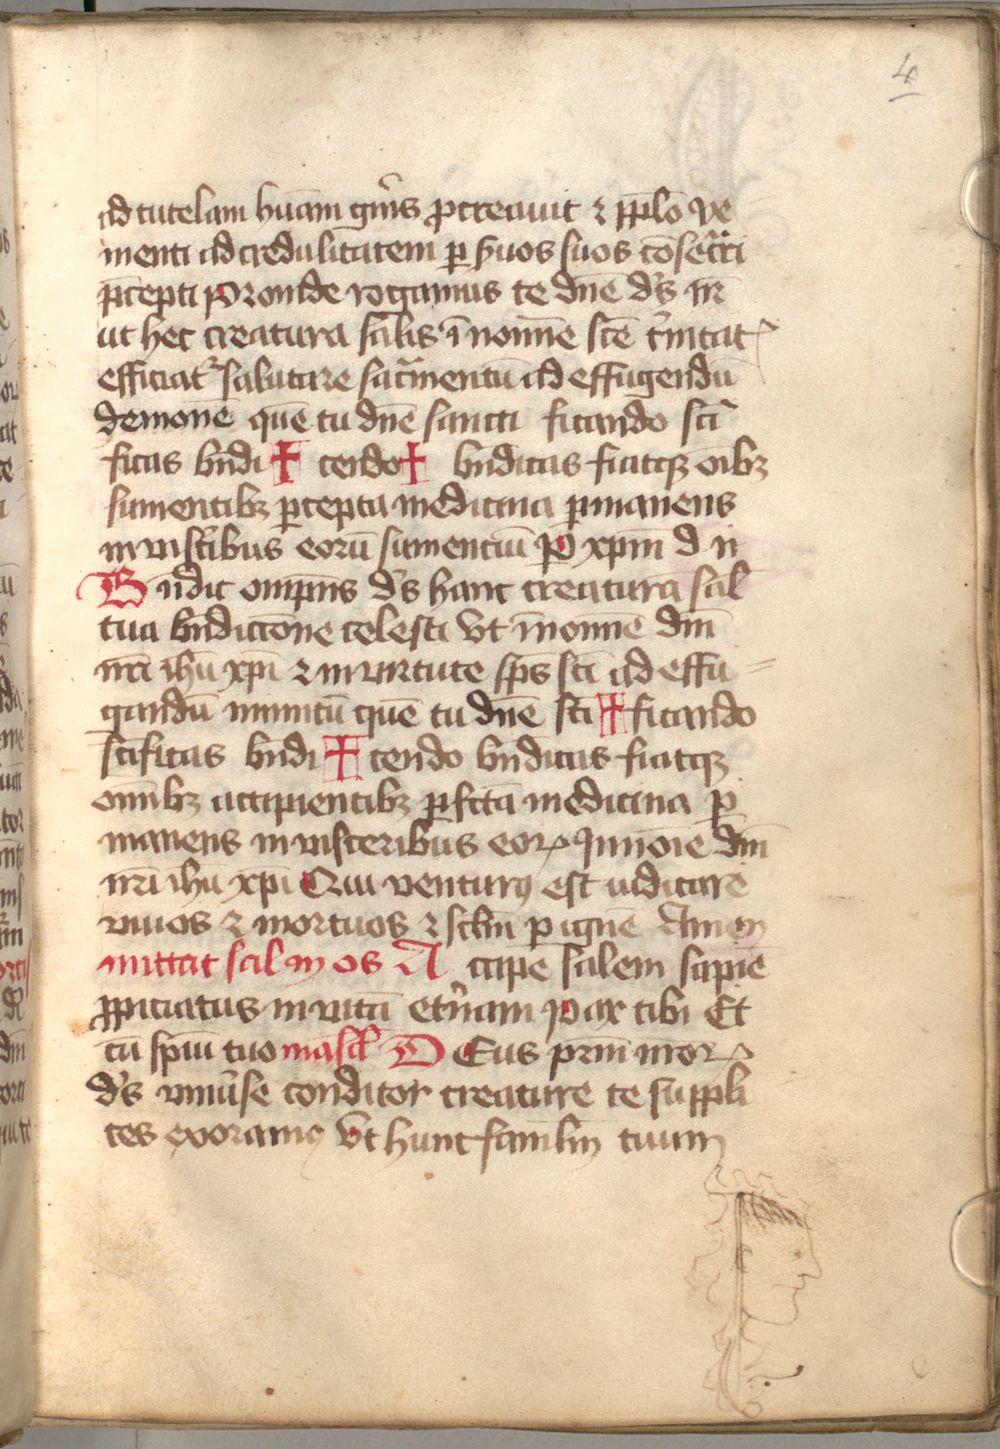 4
ad tutelam hūam gn̄is ꝓcreauit ⁊ ꝑp̄lo ve
nienti ad credulitatem ꝑ ẜuos suos cōsecr̄ri
p̄cepti Proinde rogamus te dn̄e d's nr̄
ut hec creatura salis ī nomīe sc̄e tͥnitatꝭ
efficiatᷣ salutare sacͣmentū ad effugendū
demonē quē tu dn̄e sancti ficando scī
ficas bn̄di ✝ cendo ✝ bn̄dicas fiatqꝫ oībꝫ
sumentibꝫ ꝑcepta medicina ꝑmanens
in visc̄ibus eorū sumenciū P xp̄m d n
Bn̄dic omp̄ns d's hanc creaturā sal
tua bn̄dictōne celesti vt ī nomīe dn̄i
nr̄i ih̄u xp̄i ⁊ in virtute sp̄s sc̄i ad effu
gandū inimicū quē tu dn̄e sc̄i ✝ ficando
sc̄ificas bn̄di ✝ cendo bn̄dicas fiatqꝫ
omībꝫ accipientibꝫ ꝑfc̄ta medicina ꝑ
manens in visceribus eoꝝ In nōie dn̄i
nr̄i ih̄u xp̄i Qui venturꝯ est iudicare
viuos ⁊ mortuos ⁊ sc̄lm ꝑ ignē Amen
mittat sal in os A ccipe salem sapiē
ꝓpiciatus in vitā etn̄am Pax tibi Et
cū sp̄iu tuo mascl̄ D Eus pr̄m nr̄oꝝ
d's vniūse conditor creature te suppli
ces exoramꝯ vt hunc famlm̄ tuum